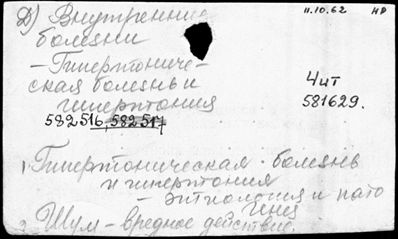 Д) Внутренние
11.10.62 НР
болезни
- Гипертониче-
ская болезнь и
гипертония
Чит
581629.
582516, 582517
1, Гипертоническая болезнь
и гипертония
- этиология и пато
генез
2. Шум - вредное действие.